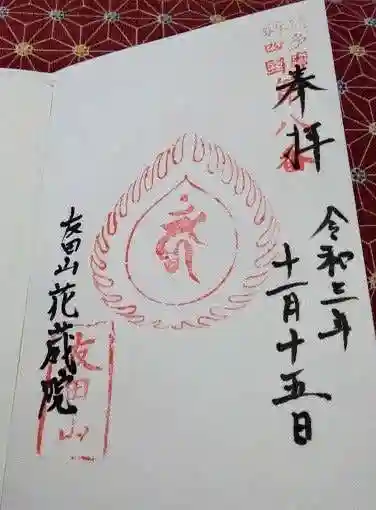 奉拝
令和三年
十一月十五日
友田山花蔵院
友田山